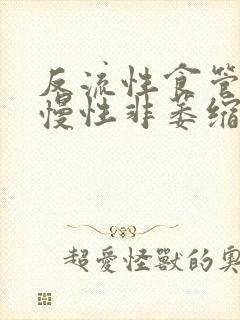 反流性食管
慢性非萎缩
超愛怪獸的奧